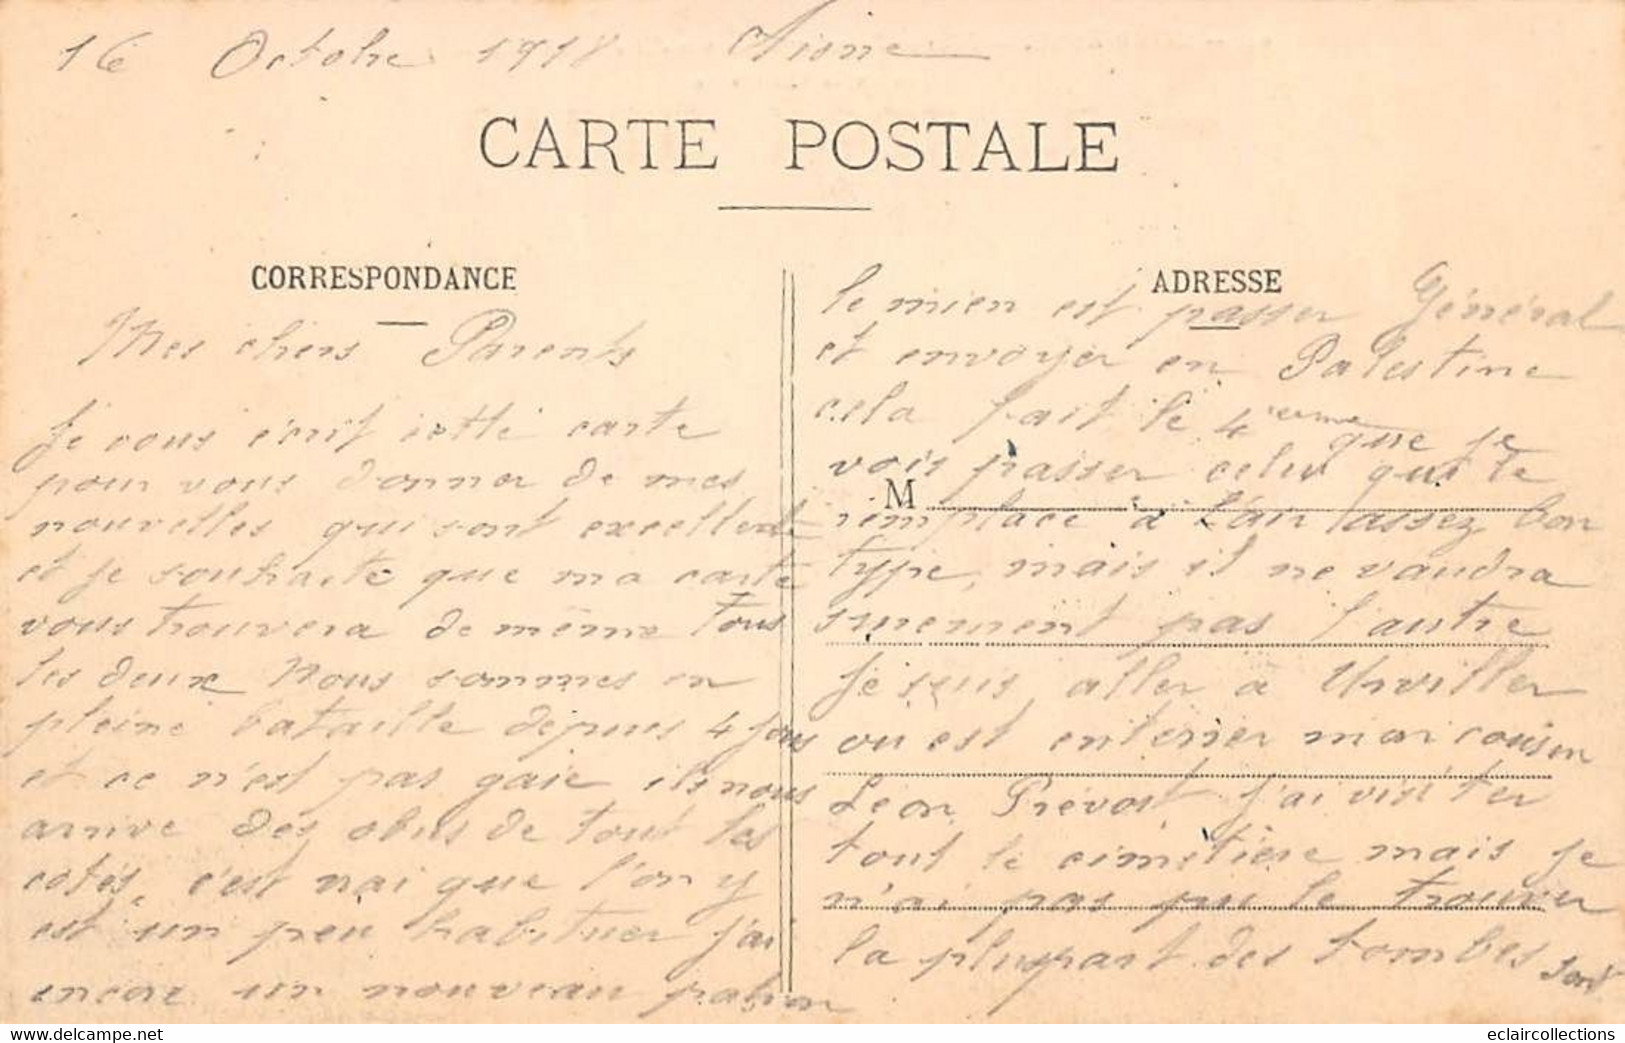 16 Octobre 1918 Aisne
CARTE POSTALE
CORRESPONDANCE
Mes chers Parents
Je vous écrit cette carte
pour vous donner de mes
nouvelles qui sont excellente
et je souhaite que ma carte
vous trouvera de même tous
les deux Nous sommes en
pleine bataille depuis 4 jours
et ce n'est pas gaie ils nous
arrive des obus de tout les
cotés, c'est vrai que l'on y
est un peu habituer j'ai
encore un nouveau patron
ADRESSE
le mien est passer Général
et envoyer en Palestine
cela fait le 4 ieme que je
vois passer celui qui le
M
remplace à l'air assez bon
type, mais il ne vaudra
surement pas l'autre
Je suis aller à Urviller
ou est enterrer mon cousin
Léon Prévost j'ai visiter
tout le cimetière mais je
n'ai pas pu le trouver
la pluspart des tombes sont
eclaircollections@delcampe.net